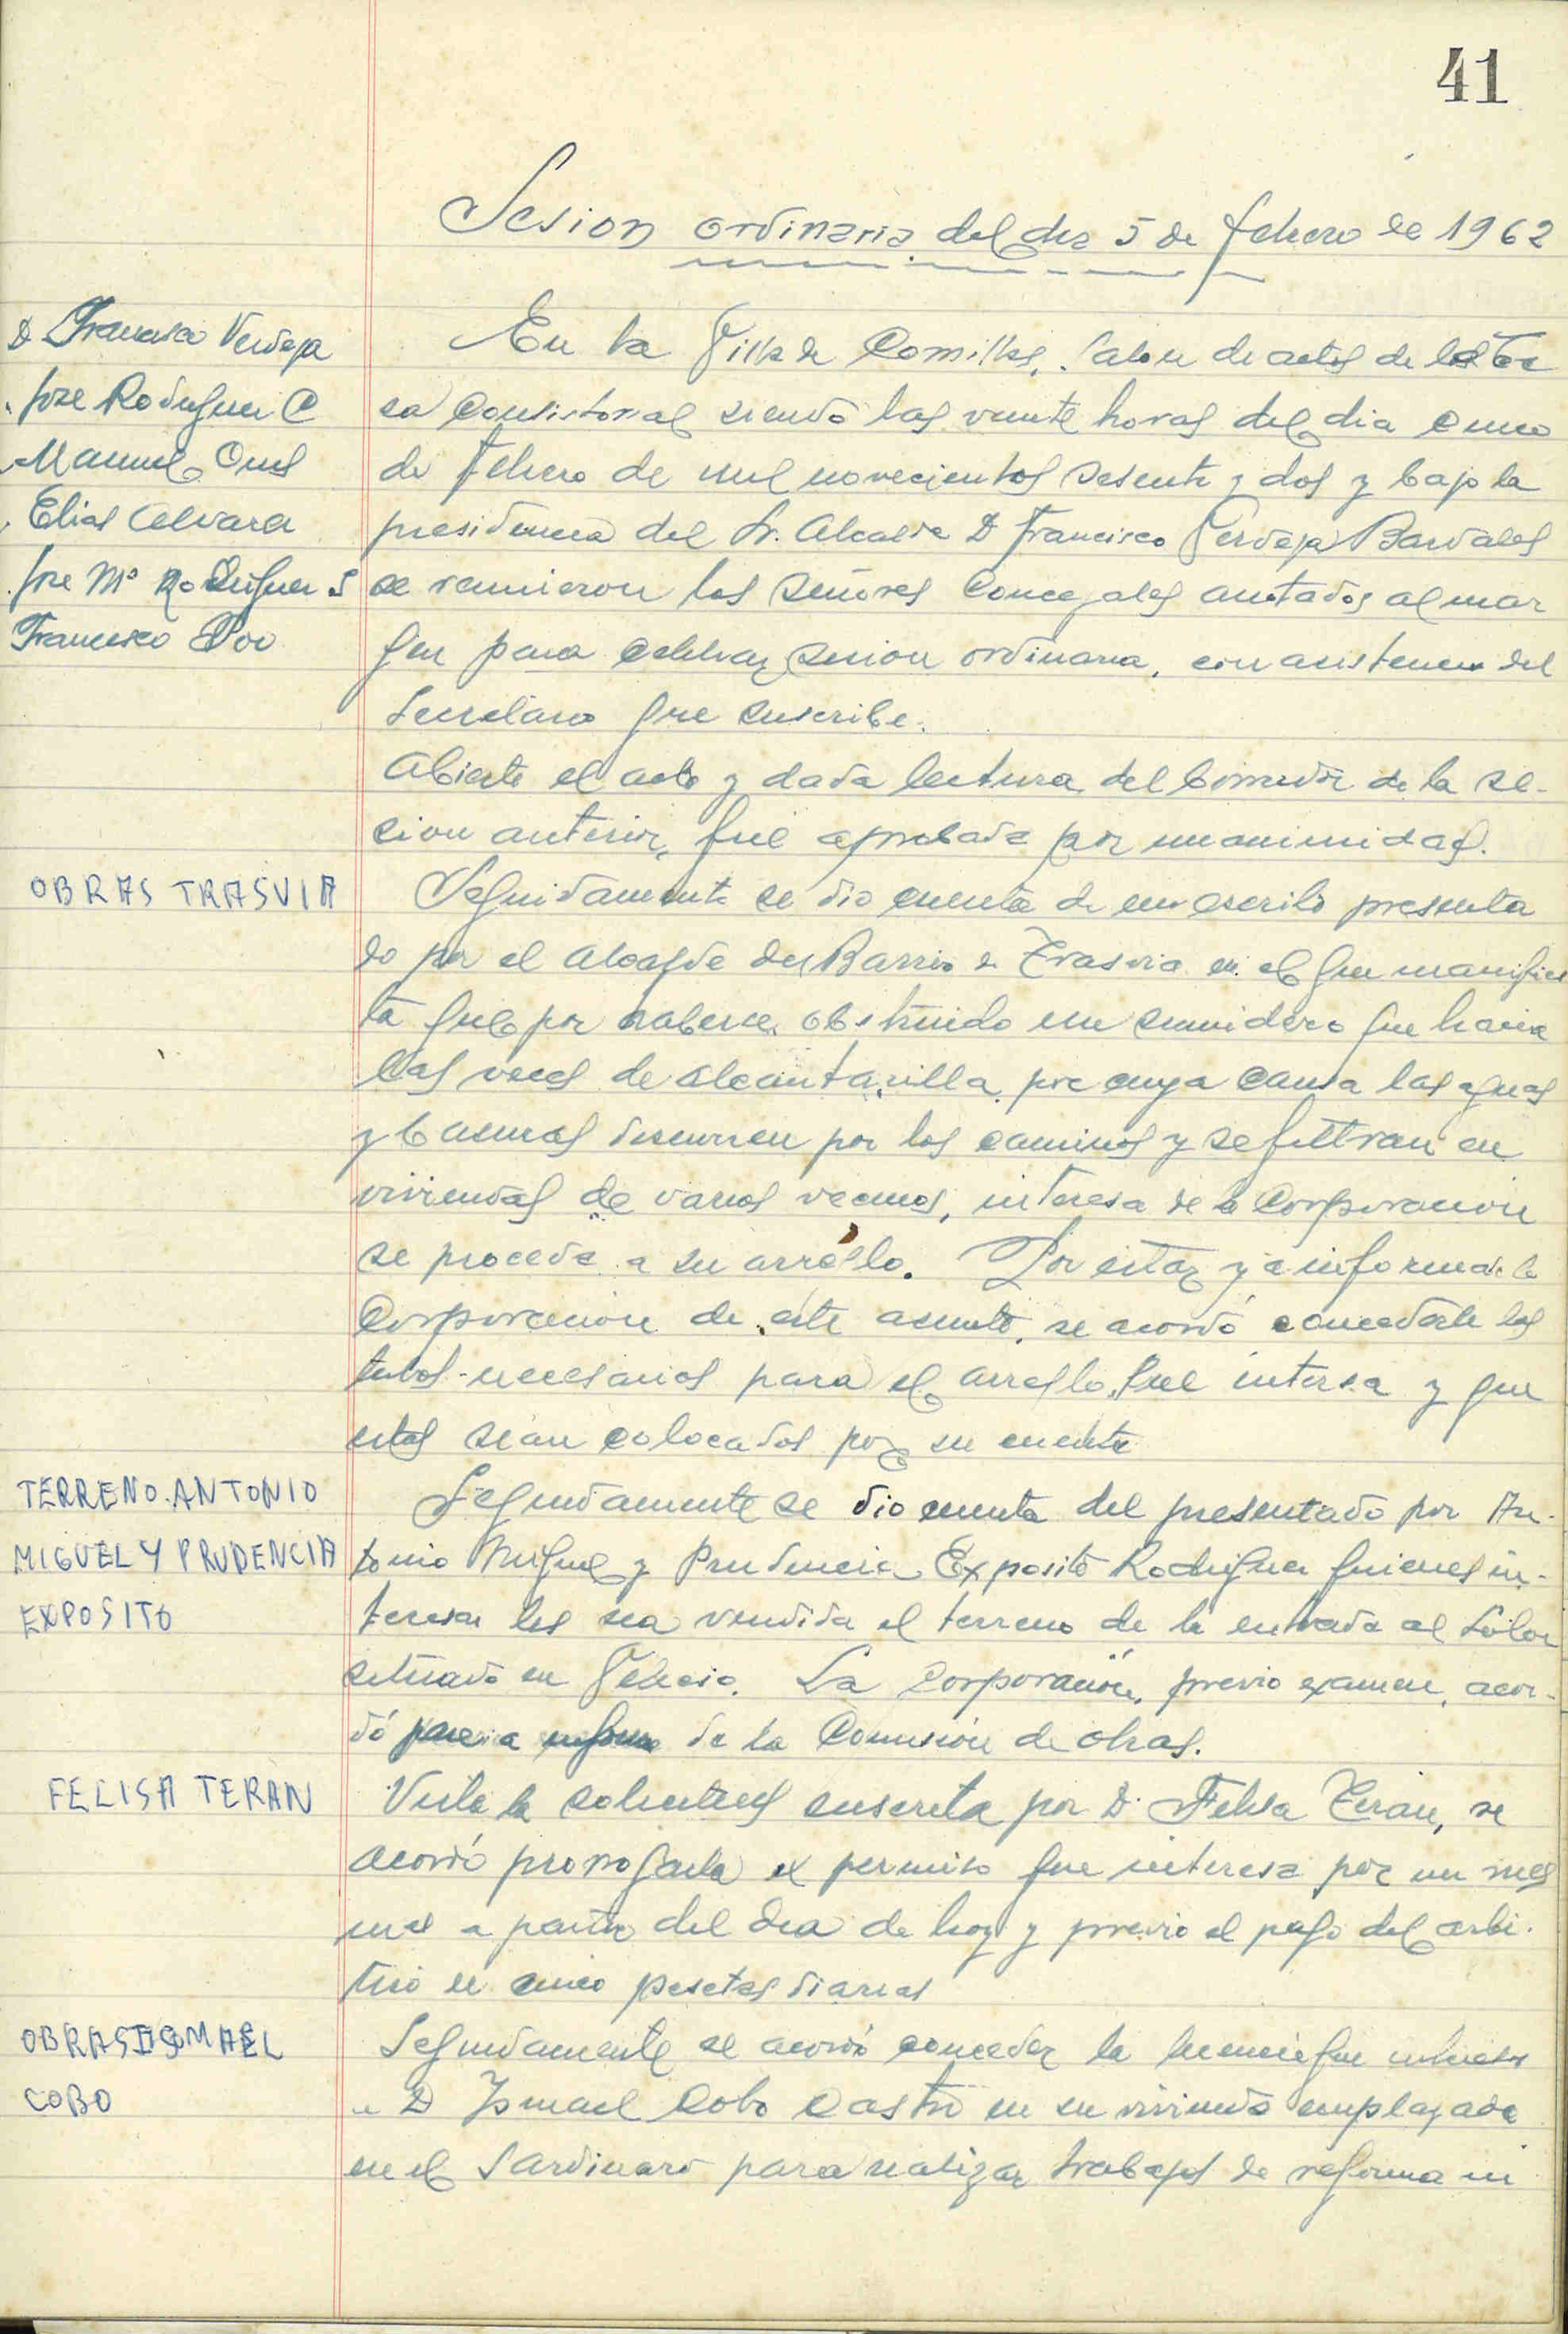 41
Sesion ordinaria del dia 5 de febrero de 1962
D Francisco Verdeja
Jose Rodriguez C
Manuel
Elias Alvara
Jose Mª Rodriguez S
Francisco Poo
En la Villa de Comillas, Salon de actos de la Ca
sa Consistorial siendo las veinte horas del dia cinco
de Febrero de mil novecientos sesenta y dos y bajo la
presidencia del Sr. Alcalde D Francisco Verdeja Bardales
se reunieron los Señores Concejales anotados al mar
gen para celebrar sesion ordinaria, con asistencia del
Secretario que suscribe.
Abierto el acto y dada lectura del borrador de la se-
sion anterior, fué aprobada por unanimidad.
OBRAS TRASVIA
Seguidamente se dio cuenta de un escrito presenta
do por el Alcalde del Barrio de Trasvia en el que manifies
ta que por haberse obstruido un sumidero que hacia
las veces de alcantarilla, por cuya causa las aguas
y basuras discurren por los caminos y se filtran en
viviendas de varios vecinos, interesa de la Corporacion
se proceda a su arreglo. Por estar ya informada la
Corporacion de este asunto, se acordó concederle los
tubos necesarios para el arreglo que interesa y que
estos sean colocados por su cuenta
TERRENO ANTONIO
MIGUEL Y PRUDENCIA
EXPOSITO
Seguidamente se dio cuenta del presentado por An-
tonio Miguel y Prudencia Exposito Rodriguez quienes in-
teresan les sea vendida el terreno de la entrada al Solar
situado en Velecio. La Corporación, previo examen, acor-
dó de la Comisión de obras.
FELISA TERAN
Vista la solicitud suscrita por D. Felisa Teran, se
acordó prorrogarla el permiso que interesa por un mes
mas a partir del dia de hoy y previo el pago del arbi-
trio de cinco pesetas diarias
OBRAS ISMAEL
COBO
Seguidamente se acordó conceder la licencia que interesa
a D Ismael Cobo Castro en su vivienda emplazada
en el Sardinero para realizar trabajos de reforma in